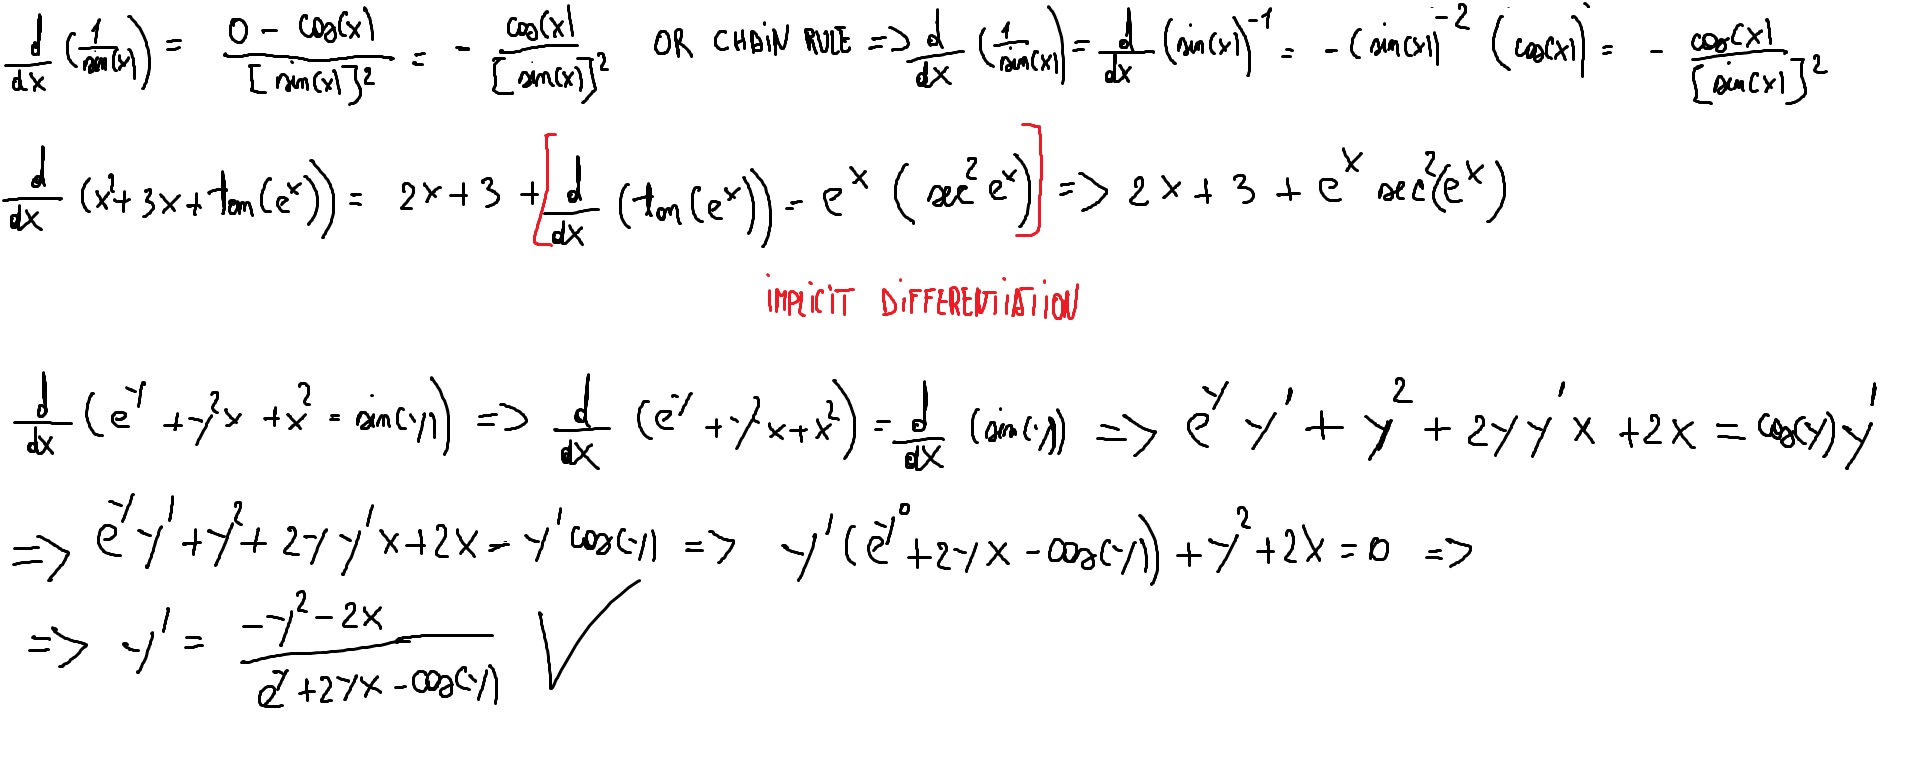 d/dx (1/sin(x)) = (0 - cos(x))/[sin(x)]² = - cos(x)/[sin(x)]² OR CHAIN RULE => d/dx (1/sin(x)) = d/dx (sin(x))⁻¹ = -(sin(x))⁻² (cos(x)) = - cos(x)/[sin(x)]²
d/dx (x²+3x+tan(eˣ)) = 2x+3 + [d/dx (tan(eˣ)) = eˣ (sec² eˣ)] => 2x+3+eˣ sec²(eˣ)
IMPLICIT DIFFERENTIATION
d/dx (e^y + y²x + x² = sin(y)) => d/dx (e^y + y²x + x²) = d/dx (sin(y)) => e^y y' + y² + 2yy'x + 2x = cos(y)y'
=> e^y y' + y² + 2yy'x + 2x - y'cos(y) => y'(e^y + 2yx - cos(y)) + y² + 2x = 0 =>
=> y' = (-y² - 2x)/(e^y + 2yx - cos(y)) ✓